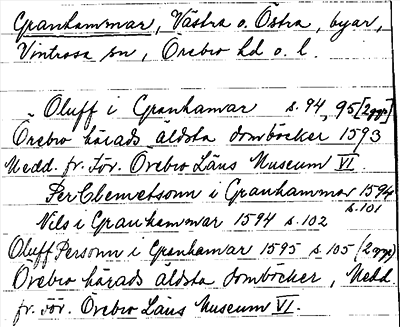 Granhammar, Västra o. Östra, byar,
Vintrosa sn, Örebro hd o. l.
Oluff i Granhamar s. 94, 95 [2 ggr]
Örebro härads äldsta domböcker 1593
Medd. fr. För. Örebro Läns Museum VI.
Per Clemetsonn i Granhammar 1594
s. 101
Nils i Granhammar 1594 s. 102
Oluff Personn i Granhamar 1595 s. 105 (2 ggr)
Örebro härads äldsta domböcker, Medd.
fr. För. Örebro Läns Museum VI.